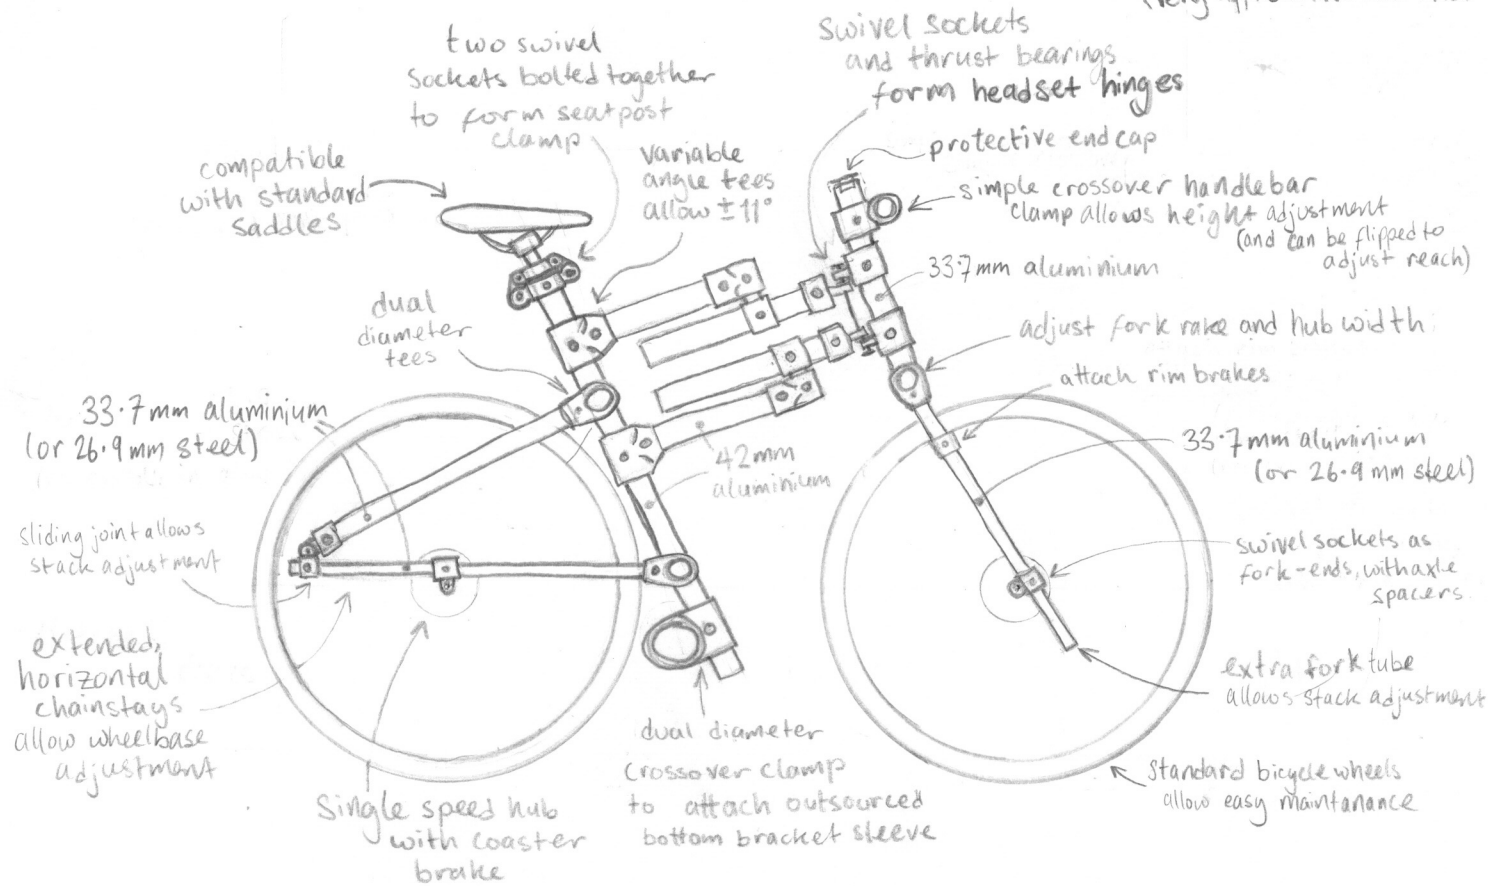 two swivel
sockets bolted together
to form seatpost
clamp
swivel sockets
and thrust bearings
form headset hinges
protective end cap
compatible
with standard
saddles
variable
angle tees
allow ±11°
simple crossover handlebar
clamp allows height adjustment
(and can be flipped to
adjust reach)
33.7mm aluminium
dual
diameter
tees
adjust fork rake and hub width
attach rim brakes
33.7mm aluminium
(or 26.9mm steel)
42mm
aluminium
33.7mm aluminium
(or 26.9mm steel)
sliding joint allows
stack adjustment
swivel sockets as
fork-ends, with axle
spacers
extended,
horizontal
chainstays
allow wheelbase
adjustment
extra fork tube
allows stack adjustment
dual diameter
crossover clamp
to attach outsourced
bottom bracket sleeve
Single speed hub
with coaster
brake
Standard bicycle wheels
allow easy maintanance